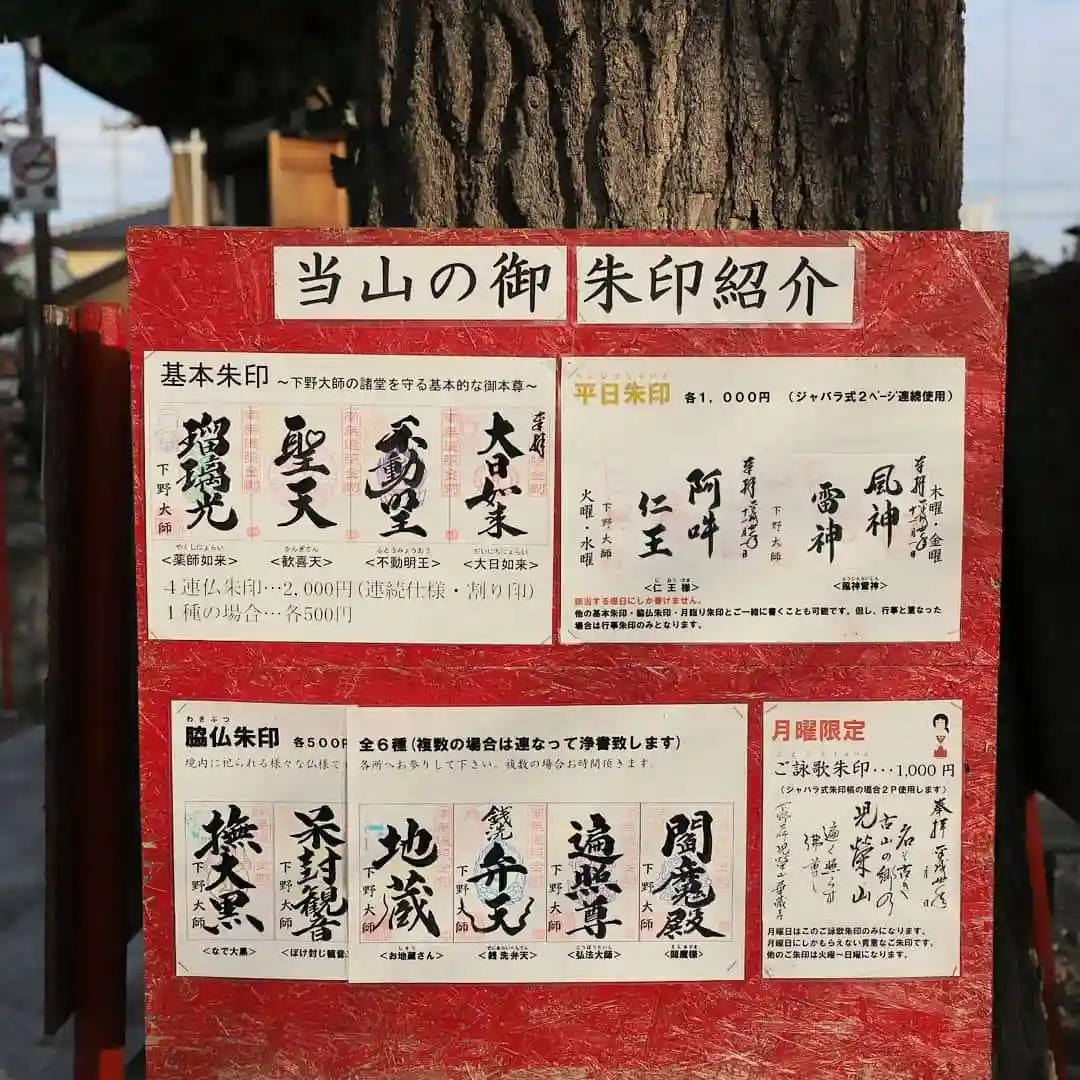 当山の御朱印紹介
基本朱印 ～下野大師の諸堂を守る基本的な御本尊～
奉拝
大日如来
不動明王
聖天
瑠璃光
下野大師
だいにちにょらい
<大日如来>
ふどうみょうおう
<不動明王>
かんぎてん
<歓喜天>
やくしにょらい
<薬師如来>
4連仏朱印…2,000円(連続仕様・割り印)
1種の場合…各500円
平日朱印 各1,000円 (ジャバラ式2ページ連続使用)
木曜・金曜
奉拝
風神
雷神
下野大師
ふうじんらいじん
<風神雷神>
奉拝
阿吽
仁王
下野大師
火曜・水曜
におうさま
<仁王様>
該当する曜日にしか書けません。
他の基本朱印・脇仏朱印・月詣り朱印とご一緒に書くことも可能です。但し、行事と重なった
場合は行事朱印のみとなります。
わきぶつ
脇仏朱印 各500円 全6種(複数の場合は連なって浄書致します)
境内に祀られる様々な仏様で
各所へお参りして下さい。複数の場合お時間頂きます。
閻魔殿
下野大師
遍照尊
下野大師
銭洗弁天
下野大師
地蔵
下野大師
呆封観音
下野大師
撫大黒
下野大師
えんまさま
<閻魔様>
<弘法大師>
ぜにあらいべんてん
<銭洗弁天>
じぞう
<お地蔵さん>
<ぼけ封じ観音>
<なで大黒>
月曜限定
ご詠歌朱印…1,000円
(ジャバラ式朱印帳の場合2P使用します)
奉拝
古山の郷の
児榮山
遍く照らす
月曜日はこのご詠歌朱印のみになります。
月曜日にしかもらえない貴重なご朱印です。
他のご朱印は火曜～日曜になります。